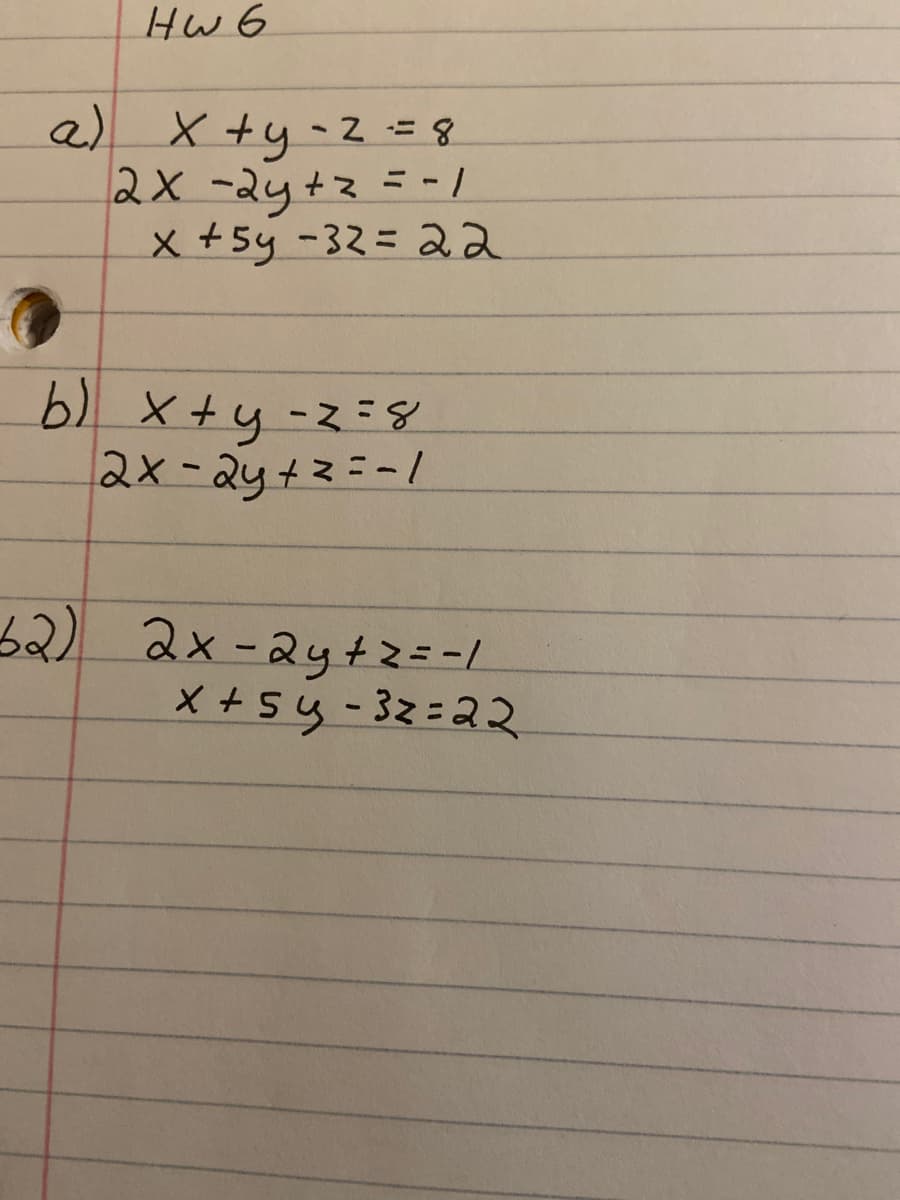 HW 6
a) x + y - z = 8
2x - 2y + z = -1
x + 5y - 3z = 22
b) x + y - z = 8
2x - 2y + z = -1
b2) 2x - 2y + z = -1
x + 5y - 3z = 22